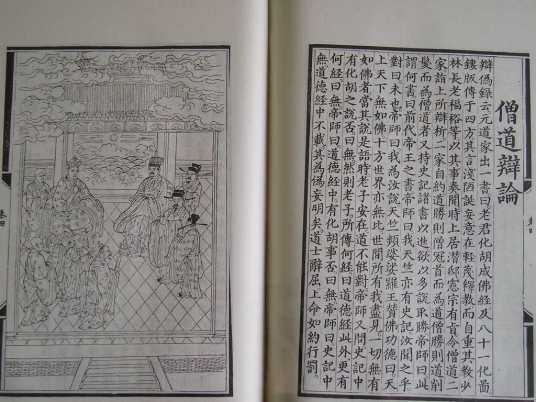 僧道辯論
辯偽錄云元道家出一書曰老君化胡成佛經及八十一化圖
鏤版傳于四方其言淺陋誕妄意在輕蔑釋教而自重其教少
林長老福裕等以其事奏聞時上居潛邸憲宗有旨令僧道二
家詣上所辯析二家自約道勝則僧冠首而為道僧勝則道削
髮而為僧道者又持史記諸書以進欲以多說取勝帝師曰此
謂何書曰前代帝王之書帝師曰我天竺亦有史記汝聞之乎
對曰未也帝師曰我為汝說天竺頻婆娑羅王贊佛功德曰天
上天下無如佛十方世界亦無比世間所有我盡見一切無有
如佛者當其說是語時老子安在道不能對帝師又問史記中
有化胡之說否曰無然則老子所傳何經曰道德經此外更有
何經曰無帝師曰道德經中有化胡事否曰無帝師曰史記中
無道德經中不載其為偽妄明矣道士辭屈上命如約行罰